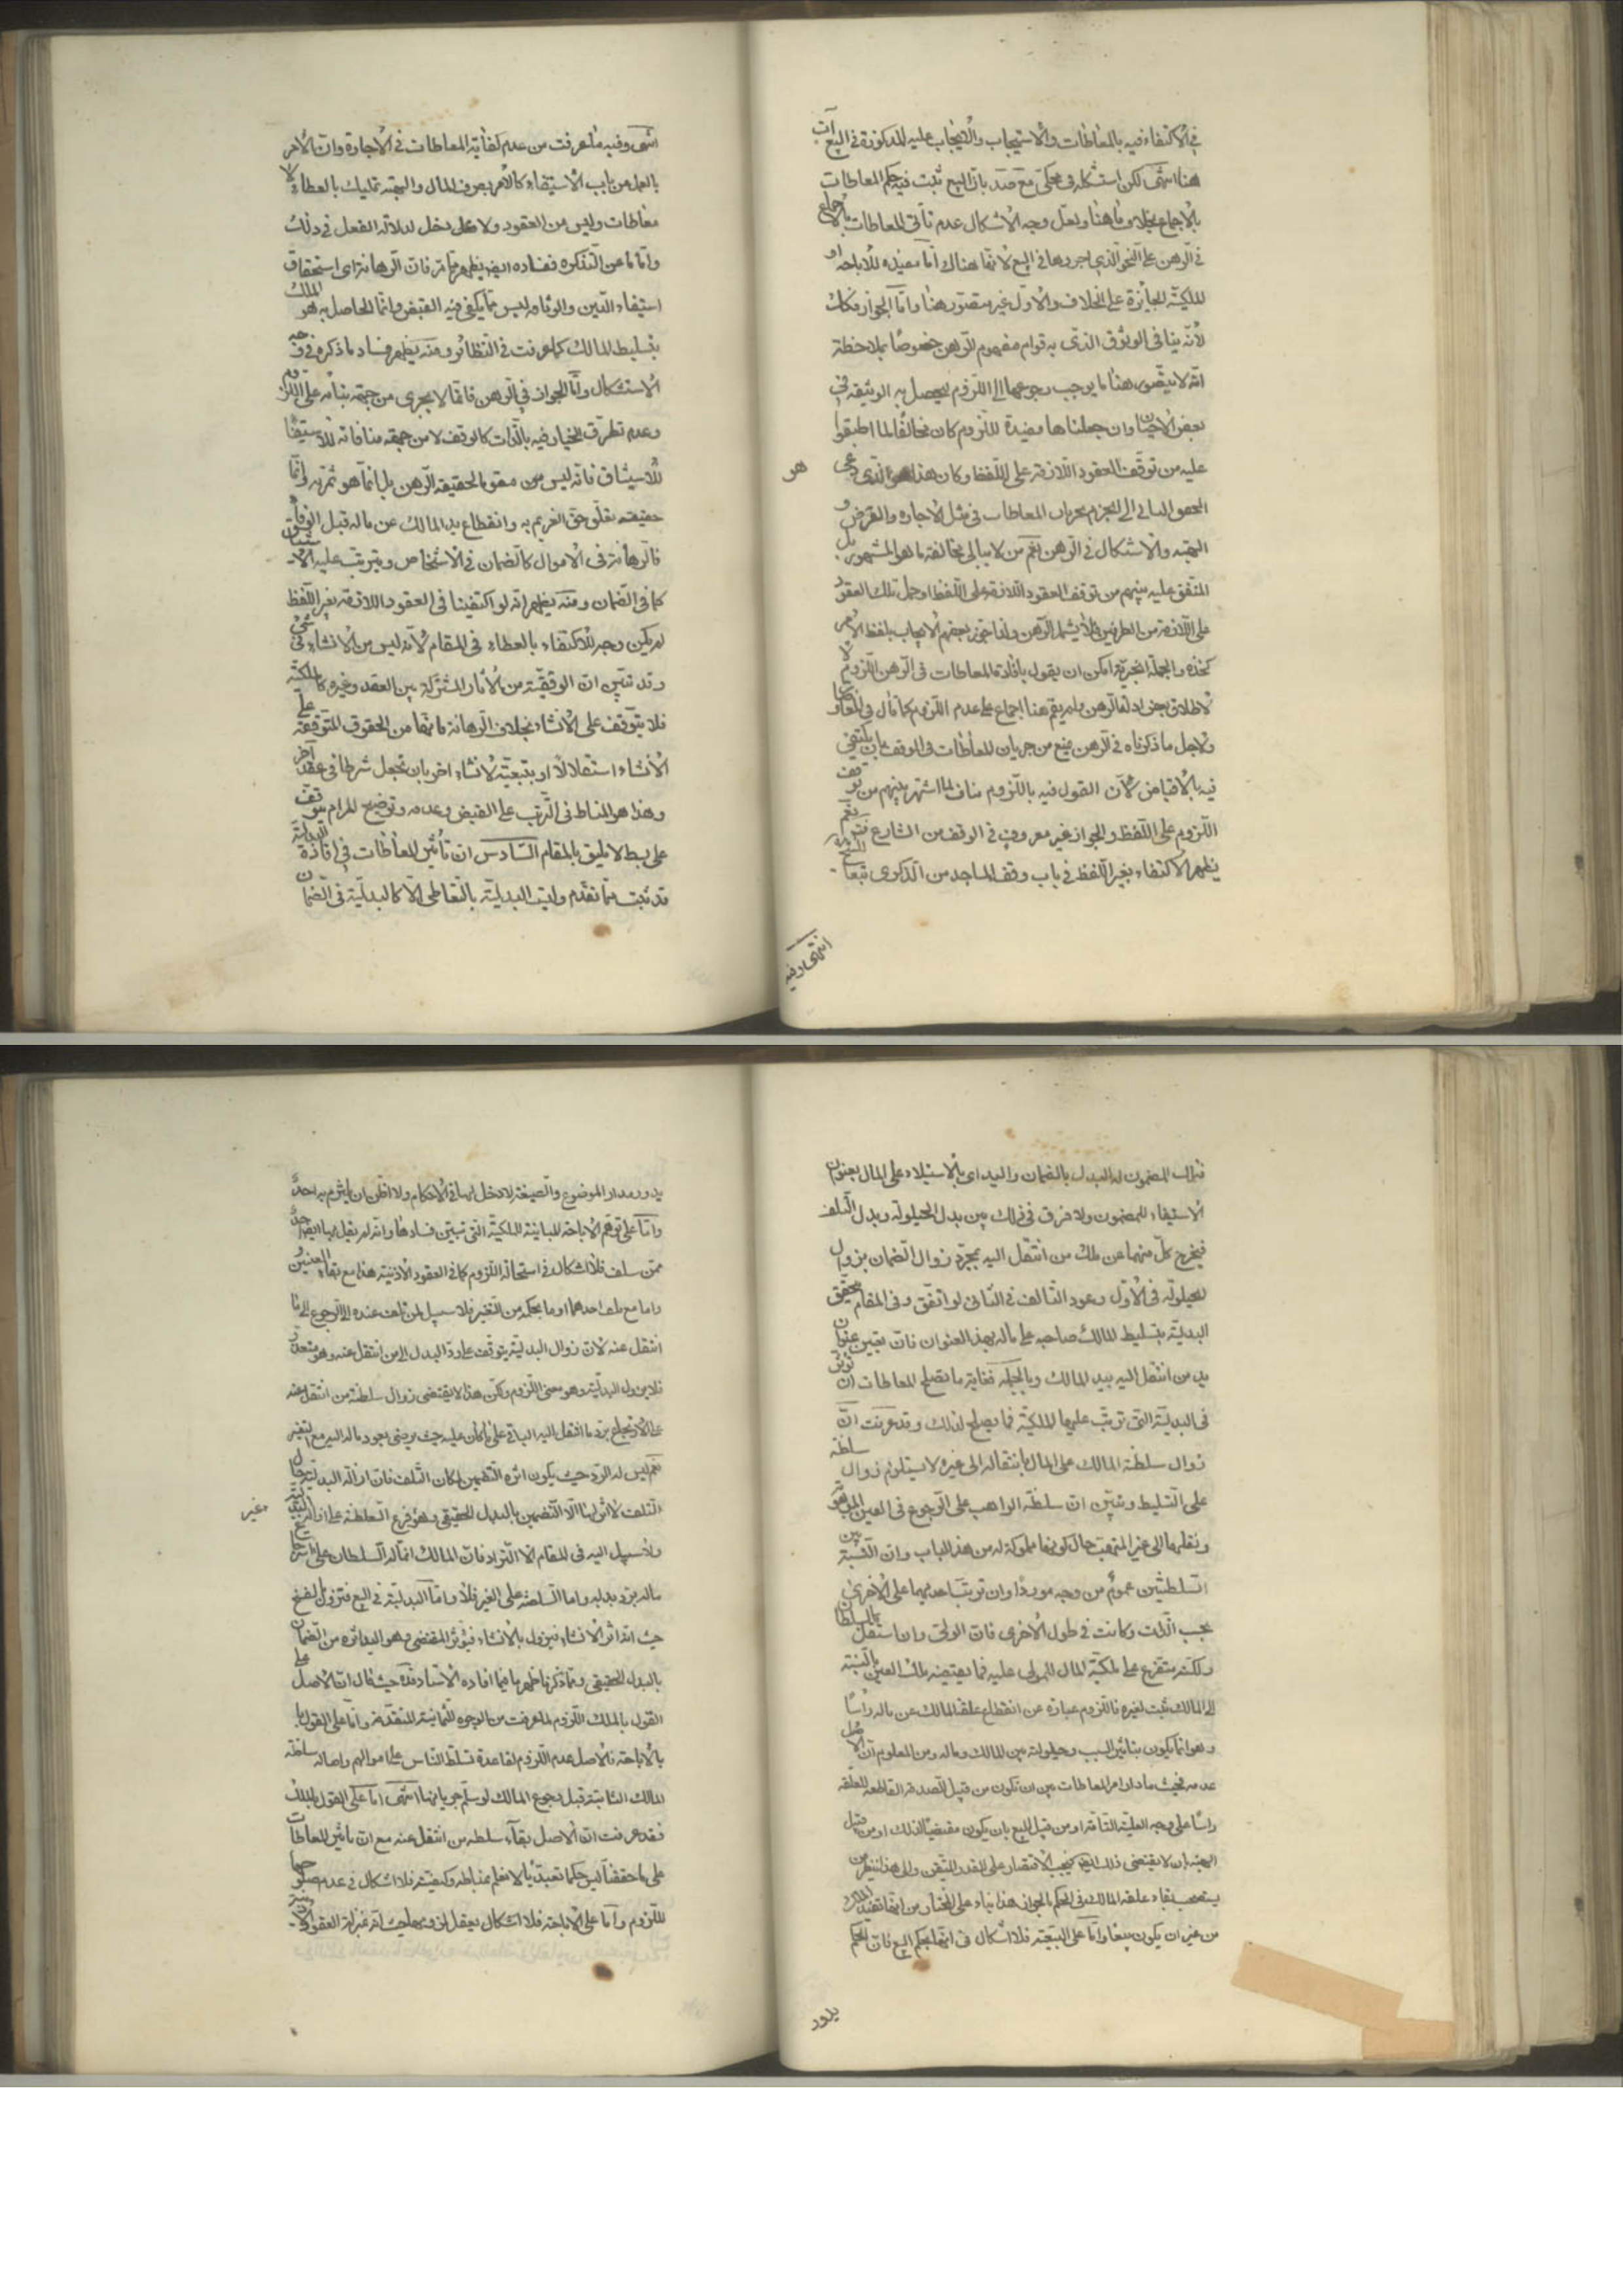 في الاكتفاء فيه بالمعاطات والاستيجاب والايجاب عليه المذكورة في البيع آت
هنا انتهى لكن استشكله في محكى مع صد بان البيع ثبت فيه حكم المعاطات
بالاجماع بخلاف ما هنا ولعل وجه الاشكال عدم تاتى المعاطات بالاجماع
في الرهن على النحو الذي اجروها في البيع لانها هناك اما مفيدة للاباحة او
للملكية الجايزة على الخلاف والاول غير متصور هنا واما الجواز فكك
لانه ينافي الوثوق الذي به قوام مفهوم الرهن خصوصا بملاحظة
انه لا يتصور هنا ما يوجب رجوعها الى اللزوم ليحصل به الوثيقة في
بعض الاحيان وان جعلناها مفيدة للزوم كان مخالفا لما اطبقوا
عليه من توقف العقود اللازمة على اللفظ وكان هذا هو الذي دعى
هو
المحقق الثاني الى الجزم بجريان المعاطات في مثل الاجارة والقرض و
الهبة والاشكال في الرهن نعم من لا يبالي مخالفة ما هو المشهور بل
المتفق عليه بينهم من توقف العقود اللازمة على اللفظ او حمل تلك العقود
على اللازمة من الطرفين فلا يشمل الرهن ولذا جوز بعضهم الايجاب بلفظ الامر
كخذه والجملة الخبرية امكن ان يقول بافادة المعاطات في الرهن اللزوم
لاطلاق بعض ادلة الرهن ولم يقم هنا اجماع على عدم اللزوم كما قال في المعاوضات
ولاجل ما ذكرناه في الرهن يمنع من جريان المعاطات في الوقف بان يكتفي
فيه بالاقباض لان القول فيه باللزوم مناف لما اشتهر بينهم من توقف
اللزوم على اللفظ والجواز غير معروف في الوقف من الشارع فتدبر نعم
يظهر الاكتفاء بغير اللفظ في باب وقف المساجد من الذكرى تبعا للشيخ
انتهى وفيه
انتهى وفيه ما عرفت من عدم كفاية المعاطات في الاجارة وان الامر
بالعمل من باب الاستيفاء كالامر بصرف المال والهبة تمليك بالعطاء لا
معاطات وليس من العقود ولا محل دخل لدلالة الفعل في ذلك
واما ما عن التذكرة ففساده ايض يظهر مما مر فان الرهانة اى استحقاق
استيفاء الدين والوثاقة ليس مما يكفي فيه القبض وانما الحاصل به هو الملك
بتسليط المالك كما عرفت في النظائر ومنه يظهر فساد ما ذكره في وجه
الاستشكال واما الجواز في الرهن فانما لا يجرى من جهة بنائه على اللزوم
وعدم تطرق الخيار فيه بالذات كالوقف لا من جهة منافاته للاستيفا
للاستيثاق فانه ليس من مقوما لحقيقة الرهن بل انما هو ثمرته وانما
حقيقته تعلق حق الغريم به وانقطاع يد المالك عن ماله قبل الوفاء
فالرهانة في الاموال كالضمان في الاشخاص ويترتب عليه الاستيثاق
كما في الضمان ومنه يظهر انه لو اكتفينا في العقود اللازمة بغير اللفظ
لم يكن وجه للاكتفاء بالعطاء في المقام لانه ليس من الانشاء في شئ
وقد تبين ان الوقفية من الاثار المشتركة بين العقد وغيره كالملكية
فلا يتوقف على الانشاء بخلاف الرهانة فانها من الحقوق المتوقفة على
الانشاء استقلالا او بتبعية لانشاء اخر بان تجعل شرطا في عقد آخر
وهذا هو المناط في الترتب على القبض وعدمه وتوضيح المرام يتوقف
على بسط لا يليق بالمقام السادس ان تأثير المعاطات في افادة البدلية
قد ثبت مما تقدم وليت البدلية بالتعاطى الا كالبدلية في الضمان
فان المضمون له البدل بالضمان واليد اى بالاستيلاء على المال بعنوان
الاستيفاء للمضمون ولا فرق في ذلك بين بدل الحيلولة وبدل التلف
فيخرج كل منهما عن ملك من انتقل اليه بمجرد زوال الضمان بزوال
الحيلولة في الاول وعود التالف في الثاني لو اتفق وفي المقام تحقق
البدلية بتسليط المالك صاحبه على ماله بهذا العنوان فان تعيين عنوان
يد من انتقل اليه بيد المالك وبالجملة فغاية ما يصلح المعاطات ان توثق
في البدلية التى ترتب عليها الملكية فما يصلح لذلك وقد عرفت ان
زوال سلطنة المالك على المال بانتقاله الى غيره لا يستلزم زوال سلطنة
على التسليط وتبين ان سلطنة الواهب على الرجوع في العين الموهوبة
ونقلها الى غير المتهب حال كونها مملوكة له من هذا الباب وان النسبة بين
السلطنتين عموم من وجه موردا وان ترتبت احديهما على الاخرى
بحسب الذات وكانت في طول الاخرى فان الولى وان استقل بالسلطان
ولكنه متفرع على ملكية المال للمولى عليه فما يقتضيه ملك العين بالنسبة
الى المالك ثبت لغيره فاللزوم عبارة عن انقطاع علقة المالك عن ماله رأسا
وهو انما يكون بتاثير السبب وحيلولة بين المالك وماله ومن المعلوم ان الاصل
عدمه فحيث ما دار امر المعاطات بين ان تكون من قبيل الصدقة القاطعة للعلقة
رأسا على وجه العلية التامة او من قبيل البيع بان يكون مقتضيا لذلك او من قبيل
الهبة بان لا يقتضى ذلك ايض فيجب الاقتصار على القدر المتيقن والى هذا ينظر من
يستصحب بقاء علقة المالك في الحكم بالجواز هذا بناء على المختار من انها تفيد الملك
من غير ان يكون بيعا واما على البيعية فلا اشكال في انها بحكم البيع فان الحكم
يدور
يدور مدار الموضوع والصيغة لا دخل لها في الاحكام ولا اظن ان يلتزم به احد
واما على توهم الاباحة المباينة للملكية التى تبين فسادها وانه لم يقل بها ايض احد
ممن سلف فلا اشكال في استحالة اللزوم كما في العقود الاذنية هذا مع بقاء العينين
واما مع تلف احدهما او ما بحكمه من التغير فلا سبيل لمن تلف عنده الى الرجوع الى ما
انتقل عنه لان زوال البدلية يتوقف على رد البدل الى من انتقل عنه وهو متعذر
فلا يزول البدلية وهو معنى اللزوم ولكن هذا لا يقتضى زوال سلطنة من انتقل عنه
على الاسترجاع برد ما انتقل اليه الباقي على ما كان عليه حيث يرضى بعود ماله اليه مع التغير
نعم ليس له الرد حيث يكون اثره التضمين لمكان التلف فان ازالة البدلية حال
التلف لا اثر لها الا التضمين بالبدل الحقيقي وهو فرع السلطنة على ازالة البدلية
وغير
ولا سبيل اليه في المقام الا التراد فان المالك انما له السلطان على استرجاع
ماله برد بدله واما السلطنة على الغير فلا واما البدلية في البيع فتزول بالفسخ
حيث انه اثر الانشاء فيزول بالانشاء فيؤثر المقتضى وهو اليد اثره من الضمان
بالبدل الحقيقي ومما ذكرنا ظهر ما فيما افاده الاستاد قده حيث قال ان الاصل على
القول بالملك اللزوم لما عرفت من الوجوه الثمانية المتقدمة واما على القول
بالاباحة فالاصل عدم اللزوم لقاعدة تسلط الناس على اموالهم واصالة سلطنة
المالك الثابتة قبل رجوع المالك لو سلم جريانها انتهى اما على القول بالملك
فقد عرفت ان الاصل بقاء سلطنة من انتقل عنه مع ان تاثير المعاطات
على ما حققنا ليس حكما تعبديا لا نعلم مناطه وكيفيته فلا اشكال في عدم صلوحها
للزوم واما على الاباحة فلا اشكال بعقل لزومها حيث انه بمنزلة العقود الاذنية